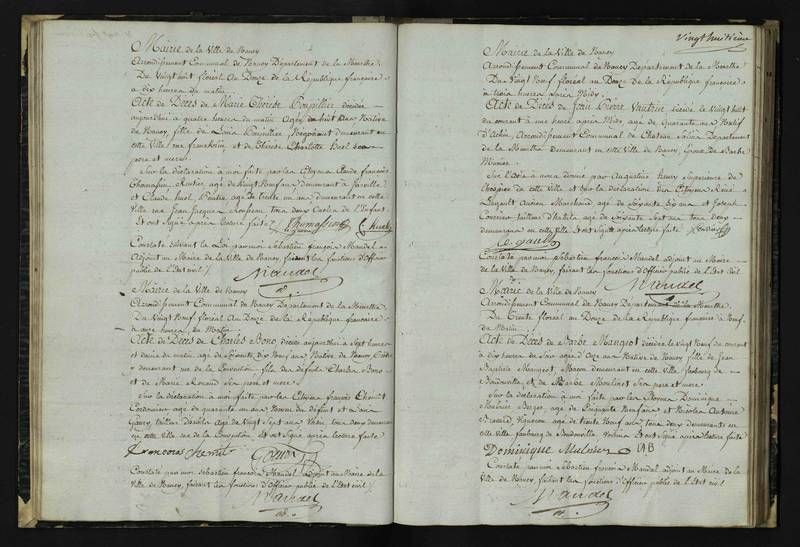 Mairie de la Ville de Nancy
Arrondissement Communal de Nancy Département de la Meurthe
Du Vingt huit floréal An Douze de la République française
à dix heures du matin
Acte de Décès de Marie Thérèse Poupillier décédée
aujourd'hui à quatre heures du matin Agée de huit ans Native
de Nancy, fille de Louis Poupillier Négociant demeurant en
cette Ville rue et de Thérèse Charlotte ses
pere et mere
Sur la déclaration à moi faite par les Citoyens Claude françois
Thomassin, Rentier, agé de Vingt Neuf ans demeurant à Jarville
et Claude huel agé de trente un ans demeurant en cette
Ville rue Jean Jacques Rousseau tous deux Oncles de l'Enfant
Et ont Signé après lecture faite Thomassin C. huel
Constaté Suivant la Loi par moi Sébastien françois Mandel
Adjoint au Maire de la Ville de Nancy, faisant les fonctions d'Officier
public de l'Etat civil
Mandel
Mairie de la Ville de Nancy
Arrondissement Communal de Nancy Département de la Meurthe
Du Vingt Neuf floréal An Douze de la République française
à onze heures du Matin
Acte de Décès de Charles Bono, décédé aujourd'hui à Sept heures
et demie du matin, agé de Soixante dix Neuf ans Native de Nancy
y demeurant rue de la Convention fils des défunts Charles Bono
et de Marie Renaud Ses pere et mere
Sur la déclaration à moi faite par les Citoyens françois Chenut
Cordonnier, agé de quarante un ans Neveu du défunt et
Gaury, tailleur d'habits agé de Vingt Sept ans tous deux demeurant
en cette Ville rue de la Convention Et ont Signé après lecture faite
francois Chenut Gaury
Constaté par moi Sébastien françois Mandel adjoint au Maire de la
Ville de Nancy, faisant les fonctions d'Officier public de l'Etat civil
Mandel
Vingt huitieme
Mairie de la Ville de Nancy
Arrondissement Communal de Nancy Département de la Meurthe
Du Vingt Neuf floréal an Douze de la République française
à trois heures après Midy
Acte de Décès de Jean Pierre Vautrin décédé le Vingt huit
du courant à une heure après Midy, agé de Quarante ans Natif
d'Achin, Arrondissement Communal de Chateau Salins Département
de la Meurthe demeurant en cette Ville de Nancy, Epoux de Barbe
Munier
Sur l'avis à nous donné par Augustine henry Supérieure de
l'hospice de cette ville et Sur la déclaration des Citoyens René
Legault Ancien Marchand agé de Soixante Six ans et Joseph
tailleur d'habits agé de Soixante Sept ans tous deux
demeurant en cette Ville et ont Signé après lecture faite
Le gault
Constaté par moi Sébastien françois Mandel adjoint au Maire
de la Ville de Nancy, faisant les fonctions d'Officier public de l'Etat civil
Mandel
Mairie de la Ville de Nancy
Arrondissement Communal de Nancy Département de la Meurthe.
Du Trente floréal an Douze de la République française à Neuf
du Matin
Acte de Décès de Barbe Mangeot décédée le Vingt Neuf du courant
à dix heures du Soir agée d'Onze ans Native de Nancy fille de Jean
Baptiste Mangeot, Maçon demeurant en cette Ville faubourg de
Boudonville, et de Barbe Moulinot Ses pere et mere
Sur la déclaration à moi faite par les Citoyens Dominique
Mulnier Berger, agé de Cinquante Neuf ans et Nicolas Antoine
Vigneron agé de trente Neuf ans, tous deux demeurants en
cette Ville faubourg de Boudonville Voisins Et ont Signé après lecture faite
Dominique Mulnier NAB
Constaté par moi Sébastien françois Mandel adjoint au Maire de la
Ville de Nancy, faisant les fonctions d'Officier public de l'Etat civil
Mandel